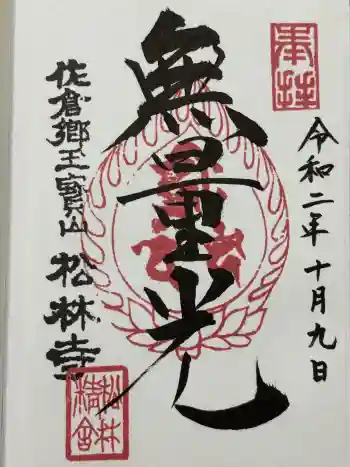 奉拝
令和二年十月九日
無量光
佐倉郷玉寶山
松林寺
松林精舎